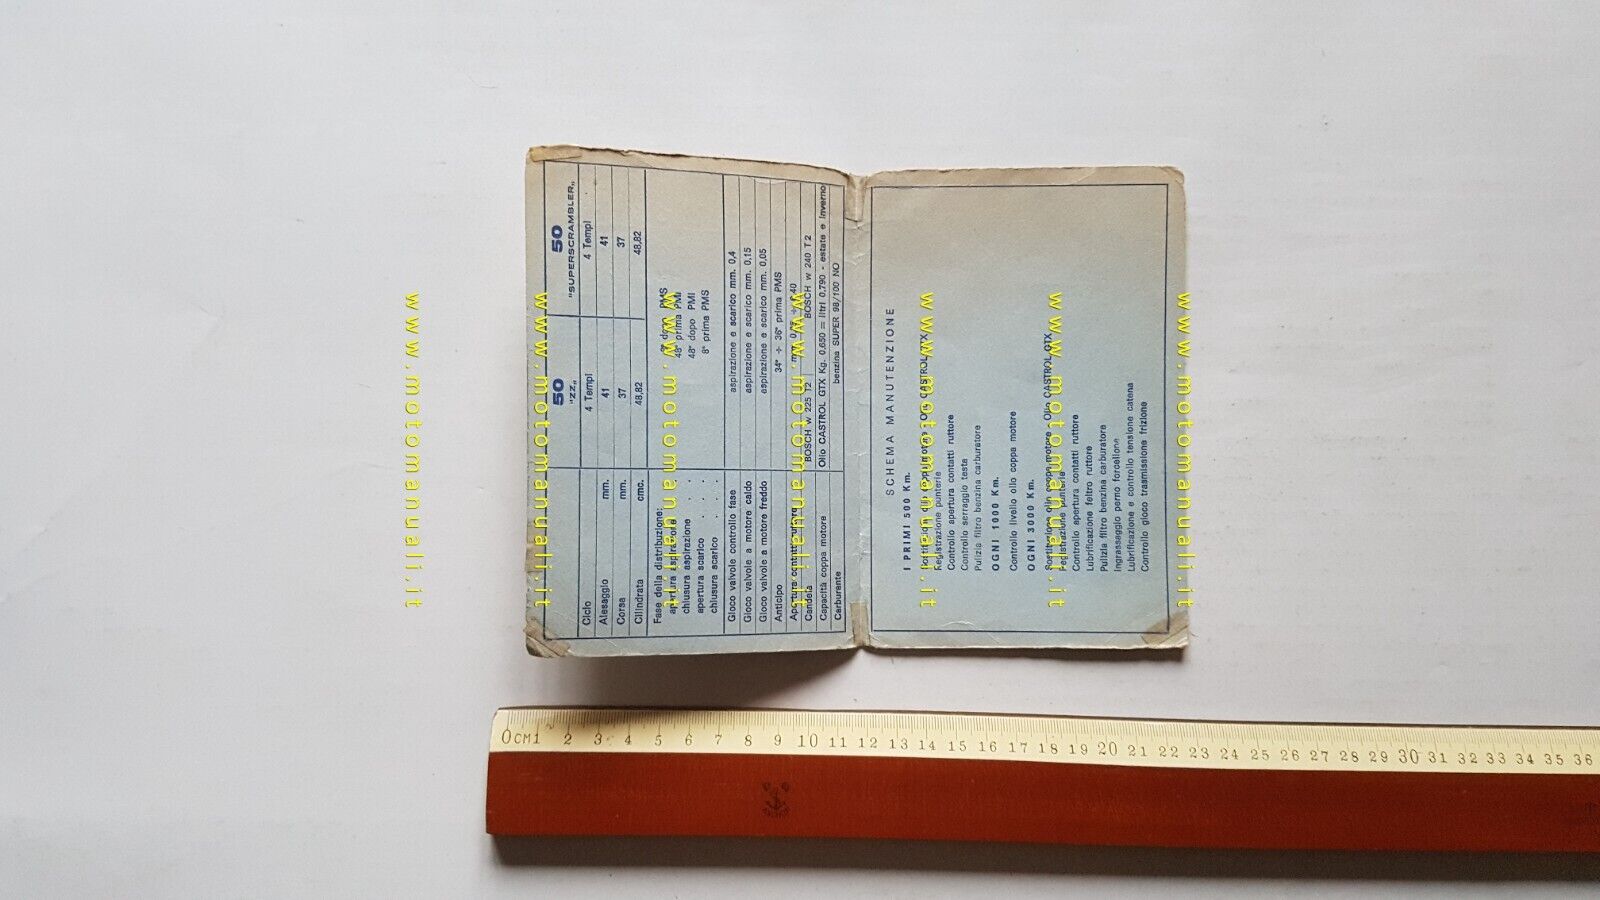 50 50
"ZZ„ "SUPERSCRAMBLER„
Ciclo 4 Tempi 4 Tempi
Alesaggio mm. 41 41
Corsa mm. 37 37
Cilindrata cmc. 48,82 48,82
Fase della distribuzione:
apertura aspirazione dopo PMS
chiusura aspirazione 48° prima PMI
apertura scarico 48° dopo PMI
chiusura scarico 8° prima PMS
Gioco valvole controllo fase aspirazione e scarico mm. 0,4
Gioco valvole a motore caldo aspirazione e scarico mm. 0,15
Gioco valvole a motore freddo aspirazione e scarico mm. 0,05
Anticipo 34° ÷ 36° prima PMS
Apertura contatti ruttore mm.
Candela BOSCH w 225 T2 BOSCH w 240 T 2
Capacità coppa motore Olio CASTROL GTX Kg. 0,650 = litri 0,790 - estate e inverno
Carburante benzina SUPER 98/100 NO
SCHEMA MANUTENZIONE
I PRIMI 500 Km.
Sostituzione olio coppa motore Olio CASTROL GTX
Registrazione punterie
Controllo apertura contatti ruttore
Controllo serraggio testa
Pulizia filtro benzina carburatore
OGNI 1000 Km.
Controllo livello olio coppa motore
OGNI 3000 Km.
Sostituzione olio coppa motore Olio CASTROL GTX
Registrazione punterie
Controllo apertura contatti ruttore
Lubrificazione feltro ruttore
Pulizia filtro benzina carburatore
Ingrassaggio perno forcellone
Lubrificazione e controllo tensione catena
Controllo gioco trasmissione frizione
www.motomanuali.it
www.motomanuali.it
www.motomanuali.it
www.motomanuali.it
www.motomanuali.it
www.motomanuali.it
www.motomanuali.it
0CM1 2 3 4 5 6 7 8 9 10 11 12 13 14 15 16 17 18 19 20 21 22 23 24 25 26 27 28 29 30 31 32 33 34 35 36